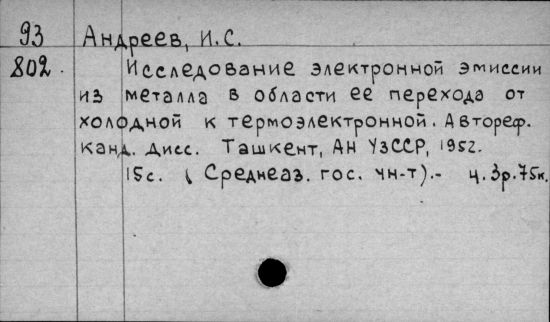 93 Андреев, И.С.
802. Исследование электронной эмиссии
из металла в области ее перехода от
холодной к термоэлектронной. Автореф.
канд. дисс. Ташкент, АН УзССР, 1952.
15с. (Среднеаз. гос. ун-т).- ц. 3р.75к.